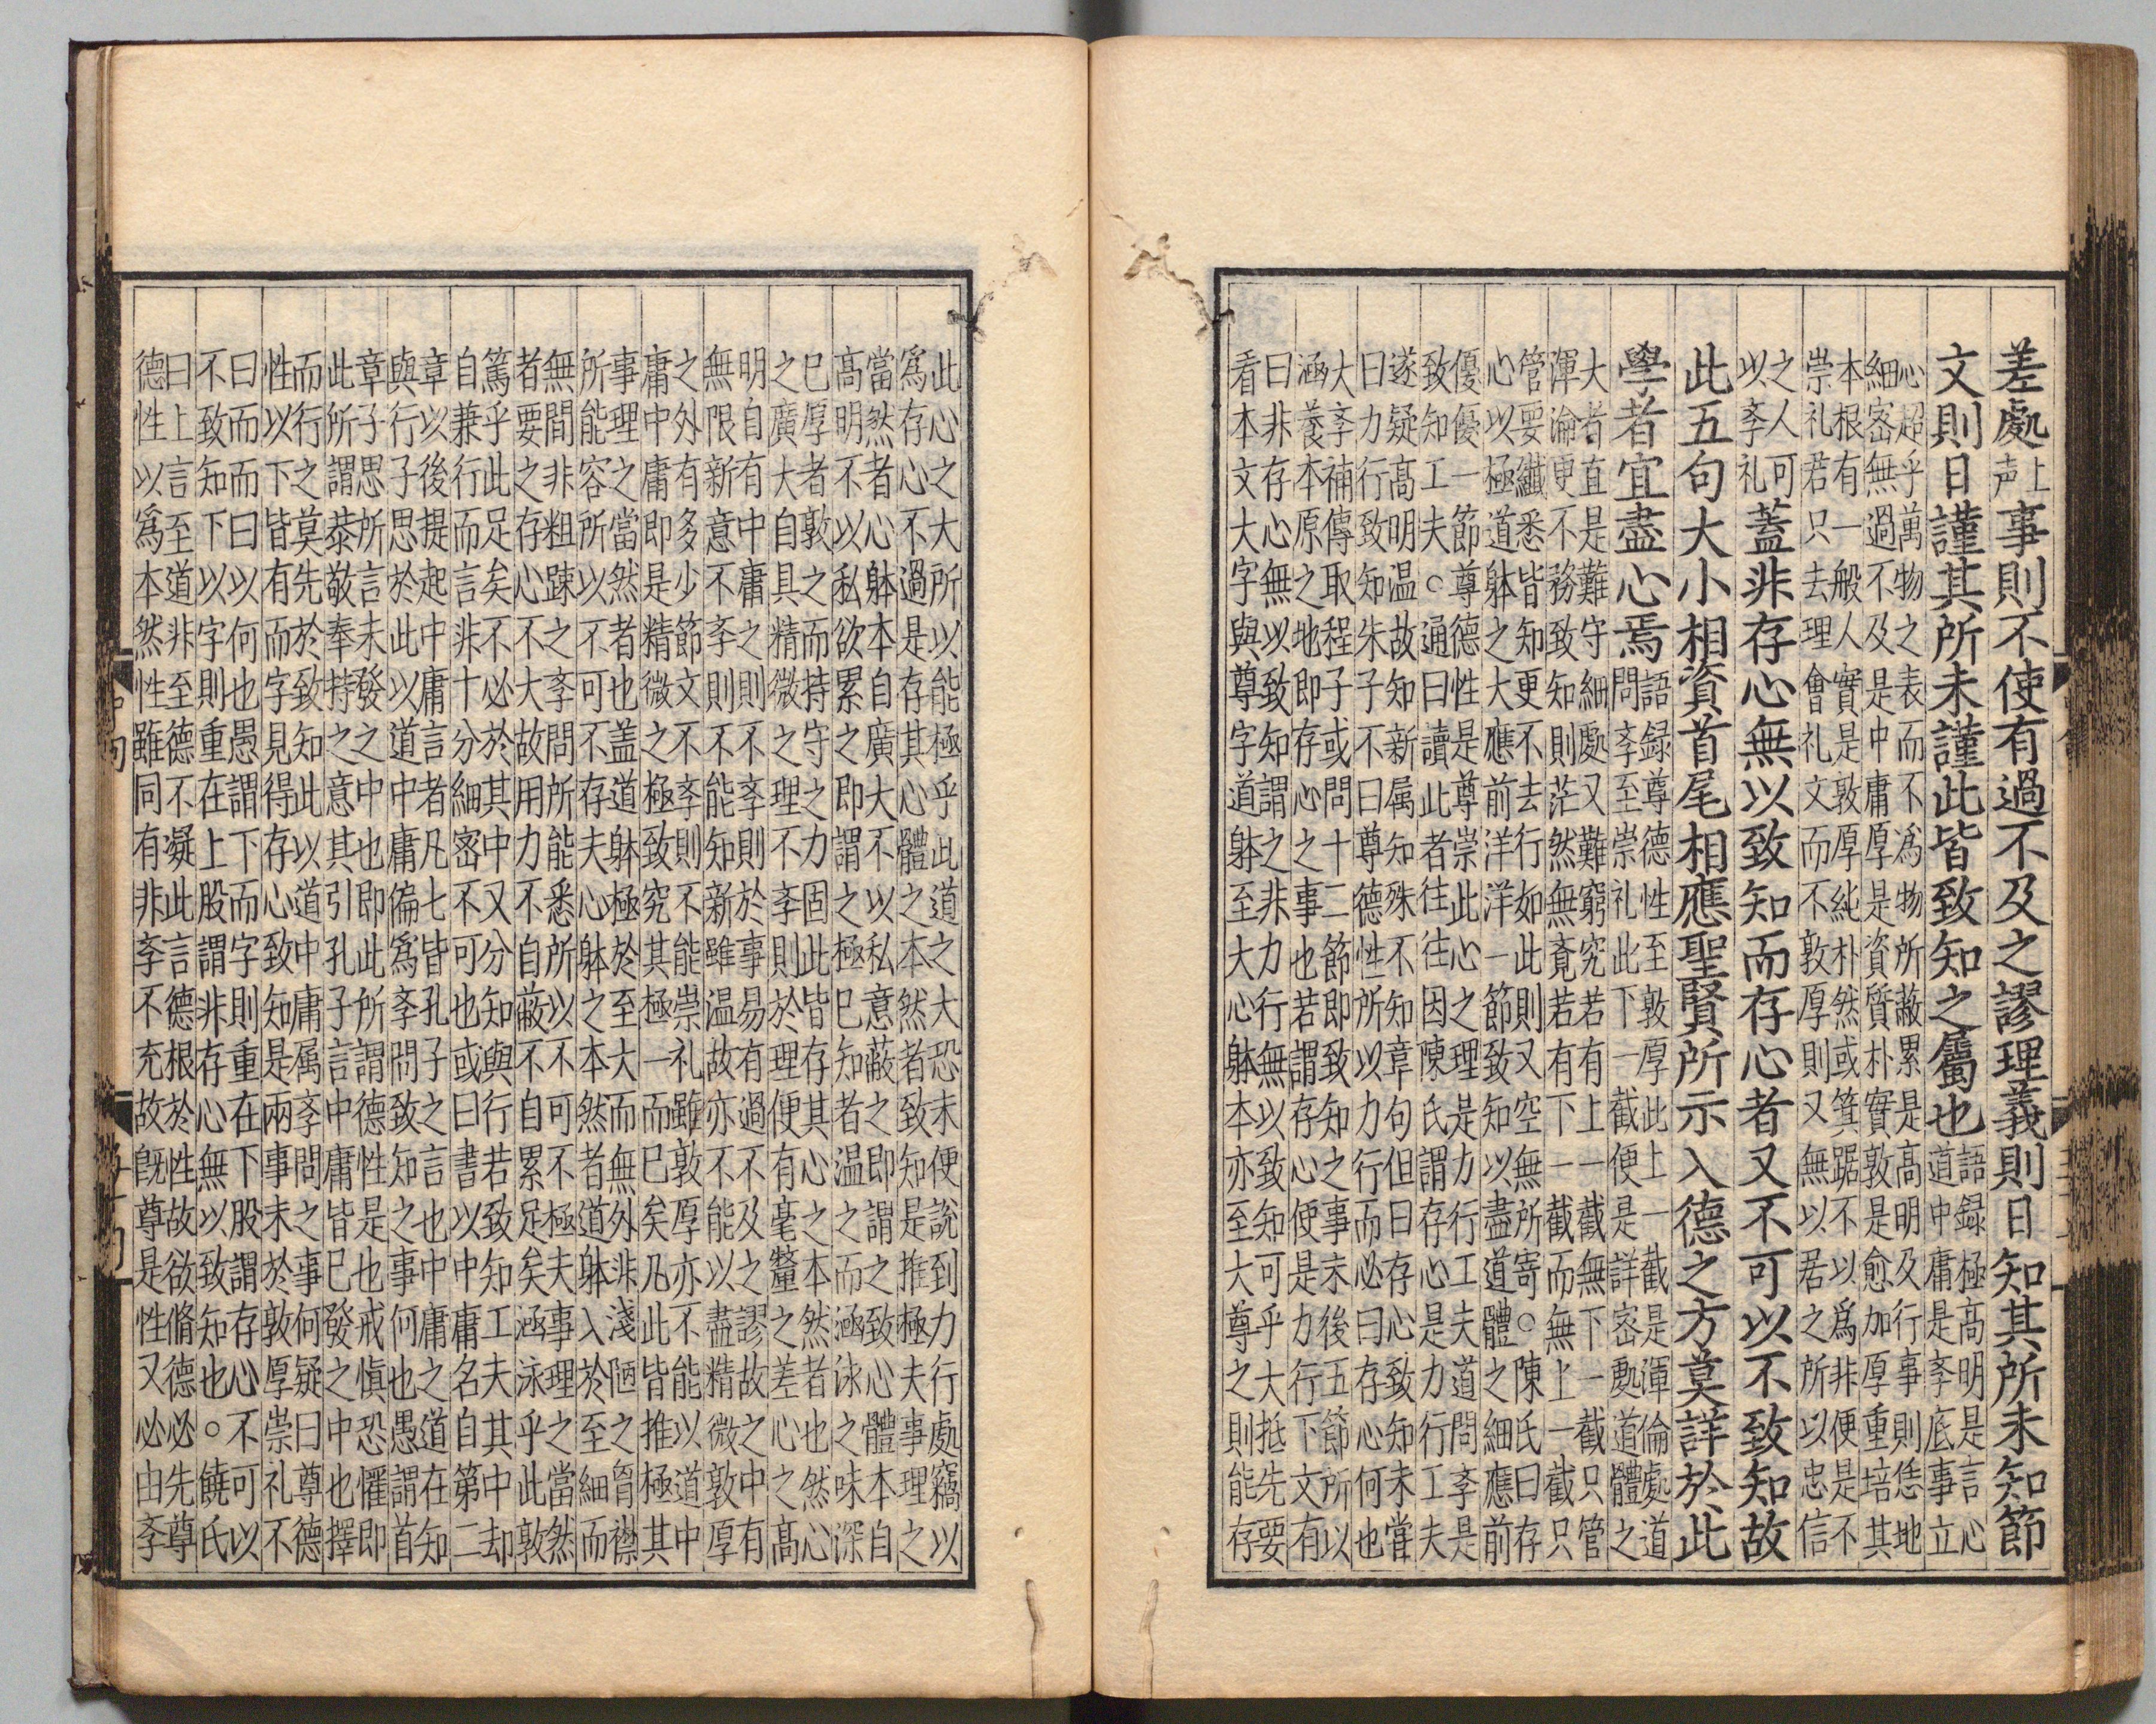 差處
上
声
事則不使有過不及之謬理義則日知其所未知節
文則日謹其所未謹此皆致知之屬也
語録極高明是言心
道中庸是斈底事立
心超乎萬物之表而不爲物所蔽累是高明及行事則恁地
細宻無過不及是中庸厚是資質朴實敦是愈加厚重培其
本根有一般人實是敦厚純朴然或箕踞不以爲非便是不
崇礼若只去理會礼文而不敦厚則又無以君之所以忠信
之人可
以斈礼
蓋非存心無以致知而存心者又不可以不致知故
此五句大小相資首尾相應聖賢所示入德之方莫詳於此
學者宜盡心焉
語録尊德性至敦厚此上一截是渾倫處道
問斈至崇礼此下一截便是詳宻處道體之
大者直是難守細處又難窮究若有上一截無下一截只管
渾淪更不務致知則茫然無覔若有下一截而無上一截只
管要纖悉皆知更不去行如此則又空無所寄○陳氏曰存
心以極道躰之大應前洋洋一節致知以盡道體之細應前
優優一節尊德性是尊崇此心之理是力行工夫道問斈是
致知工夫○通曰讀此者往往因陳氏謂存心是力行工夫
遂疑高明温故知新属知殊不知章句但曰存心致知未甞
曰力行致知朱子不曰尊德性所以力行而必曰存心何也
大斈補傳取程子或問十二節即致知之事末後五節所以
涵養本原之地即存心之事也若謂存心便是力行下文有
曰非存心無以致知謂之非力行無以致知可乎大抵先要
看本文大字與尊字道躰至大心躰本亦至大尊之則能存
此心之大所以能極乎此道之大恐未便說到力行處竊以
爲存心不過是存其心體之本然者致知是推極夫事理之
當然者心躰本自廣大不以私意蔽之即謂之致心體本自
高明不以私欲累之即謂之極已知者温之而涵泳之味深
已厚者敦之而持守之力固此皆存其心之本然者也然心
之廣大自具精微之理不斈則於理便有毫釐之差心之高
明自有中庸之則不斈則於事易有過不及之謬故之中有
無限新意不斈則不能知新雖温故亦不能以盡精微敦厚
之外有多少節文不斈則不能崇礼雖敦厚亦不能以道中
庸中庸即是精微之極致究其極一而已矣凡此皆推極其
事理之當然者也盖道躰極於至大而無外非淺陋之胷襟
所能容所以不可不存夫心躰之本然者道躰入於至細而
無間非粗踈之斈問所能悉所以不可不極夫事理之當然
者要之存心不大故用力不自蔽不自累足矣涵泳乎此敦
篤乎此足矣不必於其中又分知與行若致知工夫其中却
自兼行而言非十分細宻不可也或曰書以中庸名自第二
章以後提起中庸言者凡七皆孔子之言也中庸之道在知
與行子思於此以道中庸偹爲斈問致知之事何也愚謂首
章子思所言未發之中也即此所謂德性是也戒愼恐懼即
此所謂恭敬奉持之意其引孔子言中庸皆已發之中也擇
而行之莫先於致知此以道中庸属斈問之事何疑曰尊德
性以下皆有而字見得存心致知是兩事末於敦厚崇礼不
曰而而曰以何也愚謂下而字則重在下股謂存心不可以
不致知下以字則重在上股謂非存心無以致知也○饒氏
曰上言至道非至德不凝此言德根於性故欲脩德必先尊
德性以爲本然性雖同有非斈不充故既尊是性又必由斈